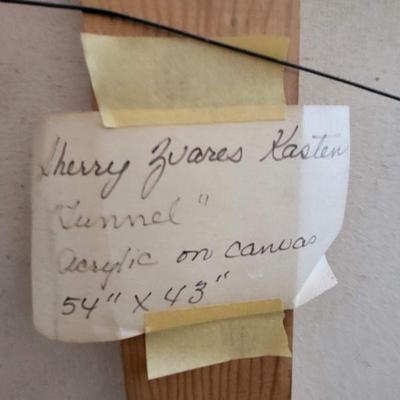 Sherry Zvares Kasten
"Tunnel"
acrylic on canvas
54" x 43"